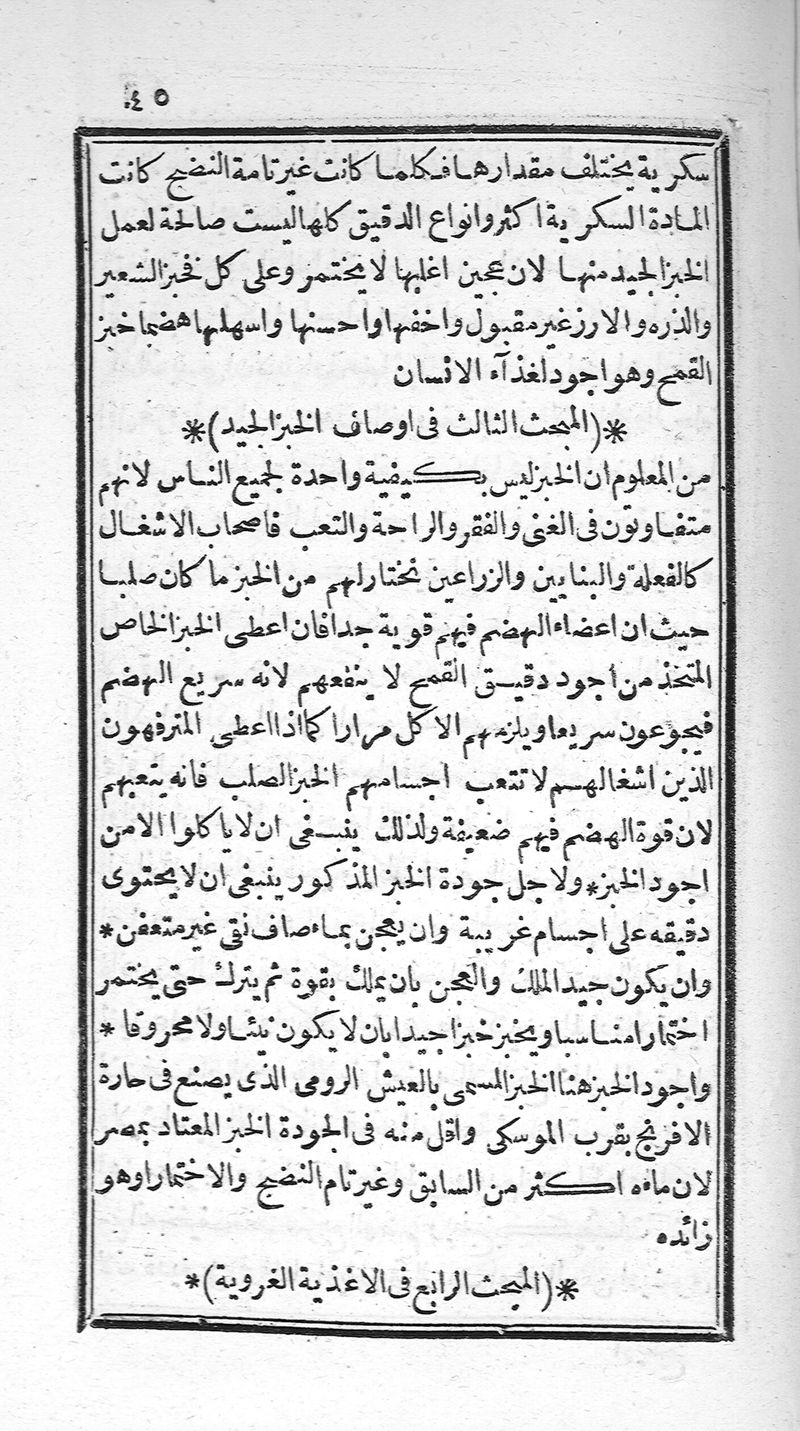 ٤٥
سكرية يختلف مقدارها فكلما كانت غير تامة النضج كانت
المادة السكرية اكثر وانواع الدقيق كلها ليست صالحة لعمل
الخبز الجيد منها لان عجين اغلبها لا يختمر وعلى كل فخبز الشعير
والذره والارز غير مقبول واخفها واحسنها واسهلها هضما خبز
القمح وهو اجود لغذآء الانسان
*(المبحث الثالث فى اوصاف الخبز الجيد)*
من المعلوم ان الخبز ليس بكيفية واحدة لجميع الناس لانهم
متفاوتون فى الغنى والفقر والراحة والتعب فاصحاب الاشغال
كالفعلة والبنايين والزراعين نختار لهم من الخبز ما كان صلبا
حيث ان اعضاء الهضم فيهم قوية جدا فان اعطى الخبز الخاص
المتخذ من اجود دقيق القمح لا ينفعهم لانه سريع الهضم
فيجوعون سريعا ويلزمهم الاكل مرارا كما اذا اعطى المترفهون
الذين اشغالهم لا تتعب اجسامهم الخبز الصلب فانه يتعبهم
لان قوة الهضم فيهم ضعيفة ولذلك ينبغى ان لا ياكلوا الا من
اجود الخبز * ولاجل جودة الخبز المذكور ينبغى ان لا يحتوى
دقيقه على اجسام غريبة وان يعجن بماء صاف نقى غير متعفن *
وان يكون جيد الملك والعجن بان يملك بقوة ثم يترك حتى يختمر
اختمارا مناسبا ويخبز خبزا جيدا بان لا يكون نيئا ولا محروقا *
واجود الخبز هنا الخبز المسمى بالعيش الرومى الذى يصنع فى حارة
الافرنج بقرب الموسكى واقل منه فى الجودة الخبز المعتاد بمصر
لان ماءه اكثر من السابق وغير تام النضج والاختمار اوهو
زائده
*(المبحث الرابع فى الاغذية الغروية)*